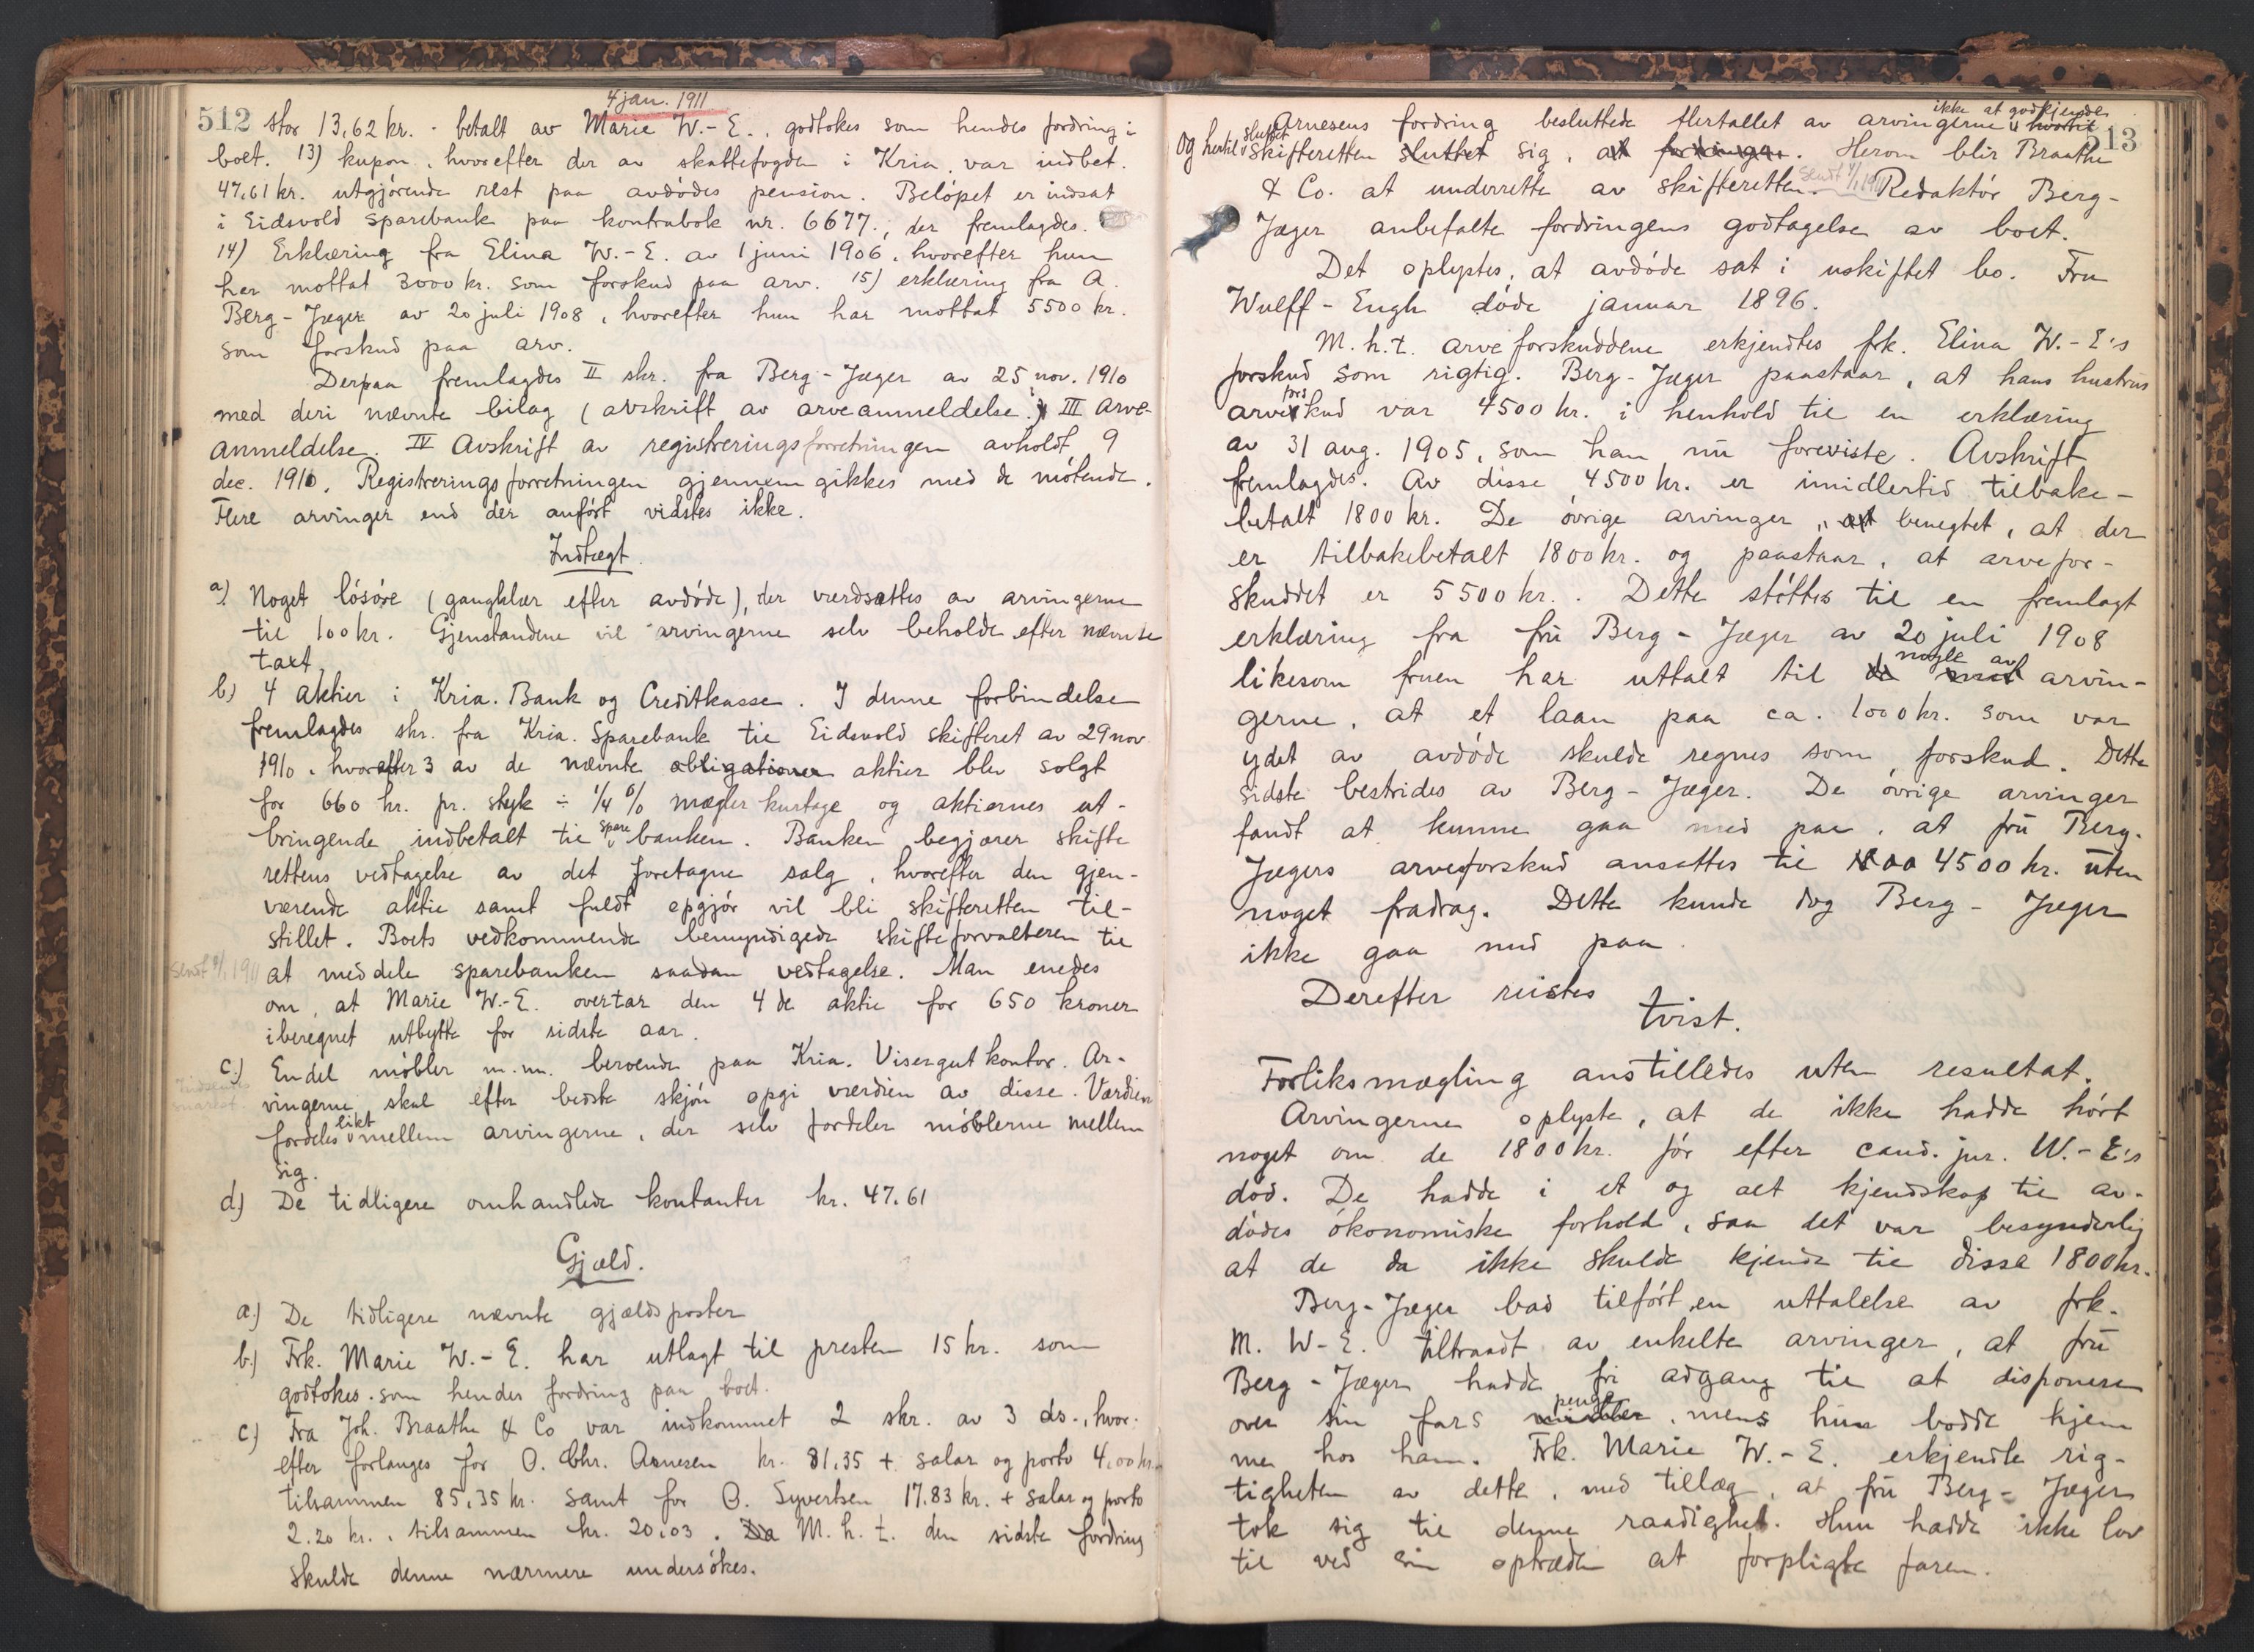 4 jan. 1911
512 stor 13,62 kr. - betalt av Marie W.-E., godtokes som hendes fordring i
boet. 13) kupon, hvorefter der av skattefogden i Kria. var indbet.
47,61 kr. utgjørende rest paa avdødes pension. Beløpet er indsat
i Eidsvold sparebank paa kontrabok nr. 6677, der fremlagdes.
14) Erklæring fra Elina W.-E. av 1 juni 1906, hvorefter hun
har mottat 3000 kr. som forskud paa arv. 15) erklæring fra A.
Berg-Jæger av 20 juli 1908, hvorefter hun har mottat 5500 kr.
som forskud paa arv.
Derpaa fremlagdes II skr. fra Berg-Jæger av 25 nov. 1910
med deri nævnte bilag (avskrift av arveanmeldelse.) III Arve-
anmeldelse. IV Avskrift av registreringsforretningen avholdt 9
dec. 1910. Registreringsforretningen gjennemgikkes med de møtende.
Flere arvinger end der anført vidstes ikke.
Indtægt.
a) Noget løsøre (gangklær efter avdøde), der værdsattes av arvingerne
til 100 kr. Gjenstandene vil arvingerne selv beholde efter nævnte
taxt.
b) 4 aktier i Kria. Bank og Creditkasse. I denne forbindelse
fremlagdes skr. fra Kria. Sparebank til Eidsvold skifteret av 29 nov.
1910, hvorefter 3 av de nævnte obligationer aktier blev solgt
for 660 kr. pr. styk ÷ 1/4 % mægler kurtage og aktiernes ut-
bringende indbetalt til sparebanken. Banken begjærer skifte
rettens vedtagelse av det foretagne salg, hvorefter den gjen-
værende aktie samt fuldt opgjør vil bli skifteretten til-
stillet. Boets vedkommende bemyndigede skifteforvalteren til
sendt 4/1 1911 at meddele sparebanken saadan vedtagelse. Man enedes
om, at Marie W.-E. overtar den 4de aktie for 650 kroner
iberegnet utbytte for sidste aar.
c.) Endel møbler m.m. beroende paa Kria. Visergutkontor. Ar-
vingerne skal efter bedste skjøn opgi værdien av disse. Værdien
fordeles likt mellem arvingerne, der selv fordeler møblerne mellem
sig.
d) De tidligere omhandlede kontanter kr. 47.61
Gjæld.
a.) De tidligere nævnte gjældsposter
b.) Frk. Marie W.-E. har utlagt til presten 15 kr. som
godtokes som hendes fordring paa boet.
c) Fra Joh. Braathe & Co var indkommet 2 skr. av 3 ds., hvor-
efter forlanges for O. Chr. Arnesen kr. 81,35 + salar og porto 4,00 kr.
tilsammen 85,35 kr. samt for O. Syvertsen 17.83 kr. + salar og porto
2.20 kr., tilsammen kr. 20,03. Da M.h.t. den sidste fordring
skulde denne nærmere undersøkes.
513
Arnesens fordring besluttede flertallet av arvingerne ikke at godkjende hvortil
og hertil sluttet skifteretten sluttet sig, at fordringen. Herom blir Braathe
& Co. at underrette av skifteretten. sendt 4/1 1911 Redaktør Berg-
Jæger anbefalte fordringens godtagelse av boet.
Det oplystes, at avdøde sat i uskiftet bo. Fru
Wulff-Engh døde januar 1896.
M.h.t. arveforskuddene erkjendtes frk. Elina W.-E's
forskud som rigtig. Berg-Jæger paastaar, at hans hustrus
arveforskud var 4500 kr. i henhold til en erklæring
av 31 aug. 1905, som han nu foreviste. Avskrift
fremlagdes. Av disse 4500 kr. er imidlertid tilbake-
betalt 1800 kr. De øvrige arvinger benegtet, at der
er tilbakebetalt 1800 kr. og paastaar, at arvefor-
skuddet er 5500 kr. Dette støttes til en fremlagt
erklæring fra fru Berg-Jæger av 20 juli 1908
likesom fruen har uttalt til nogle av arvin-
gerne, at et laan paa ca. 1000 kr. som var
ydet av avdøde skulde regnes som forskud. Dette
sidste bestrides av Berg-Jæger. De øvrige arvinger
fandt at kunne gaa med paa, at fru Berg-
Jægers arveforskud ansattes til 4500 kr. uten
noget fradrag. Dette kunde dog Berg-Jæger
ikke gaa med paa.
Derefter reistes
tvist.
Forliksmægling anstilledes uten resultat.
Arvingerne oplyste, at de ikke hadde hørt
noget om de 1800 kr. før efter cand. jur. W.-E's
død. De hadde i et og alt kjendskap til av-
dødes økonomiske forhold, saa det var besynderlig
at de da ikke skulde kjende til disse 1800 kr.
Berg-Jæger bad tilført en uttalelse av frk.
M. W-E. tiltraadt av enkelte arvinger, at fru
Berg-Jæger hadde fri adgang til at disponere
over sin fars midler penge, mens hun bodde hjem
me hos ham. Frk. Marie W.-E. erkjendte rig-
tigheten av dette, med tillæg, at fru Berg-Jæger
tok sig til denne raadighet. Hun hadde ikke lov
til ved sin optræden at forpligte faren.